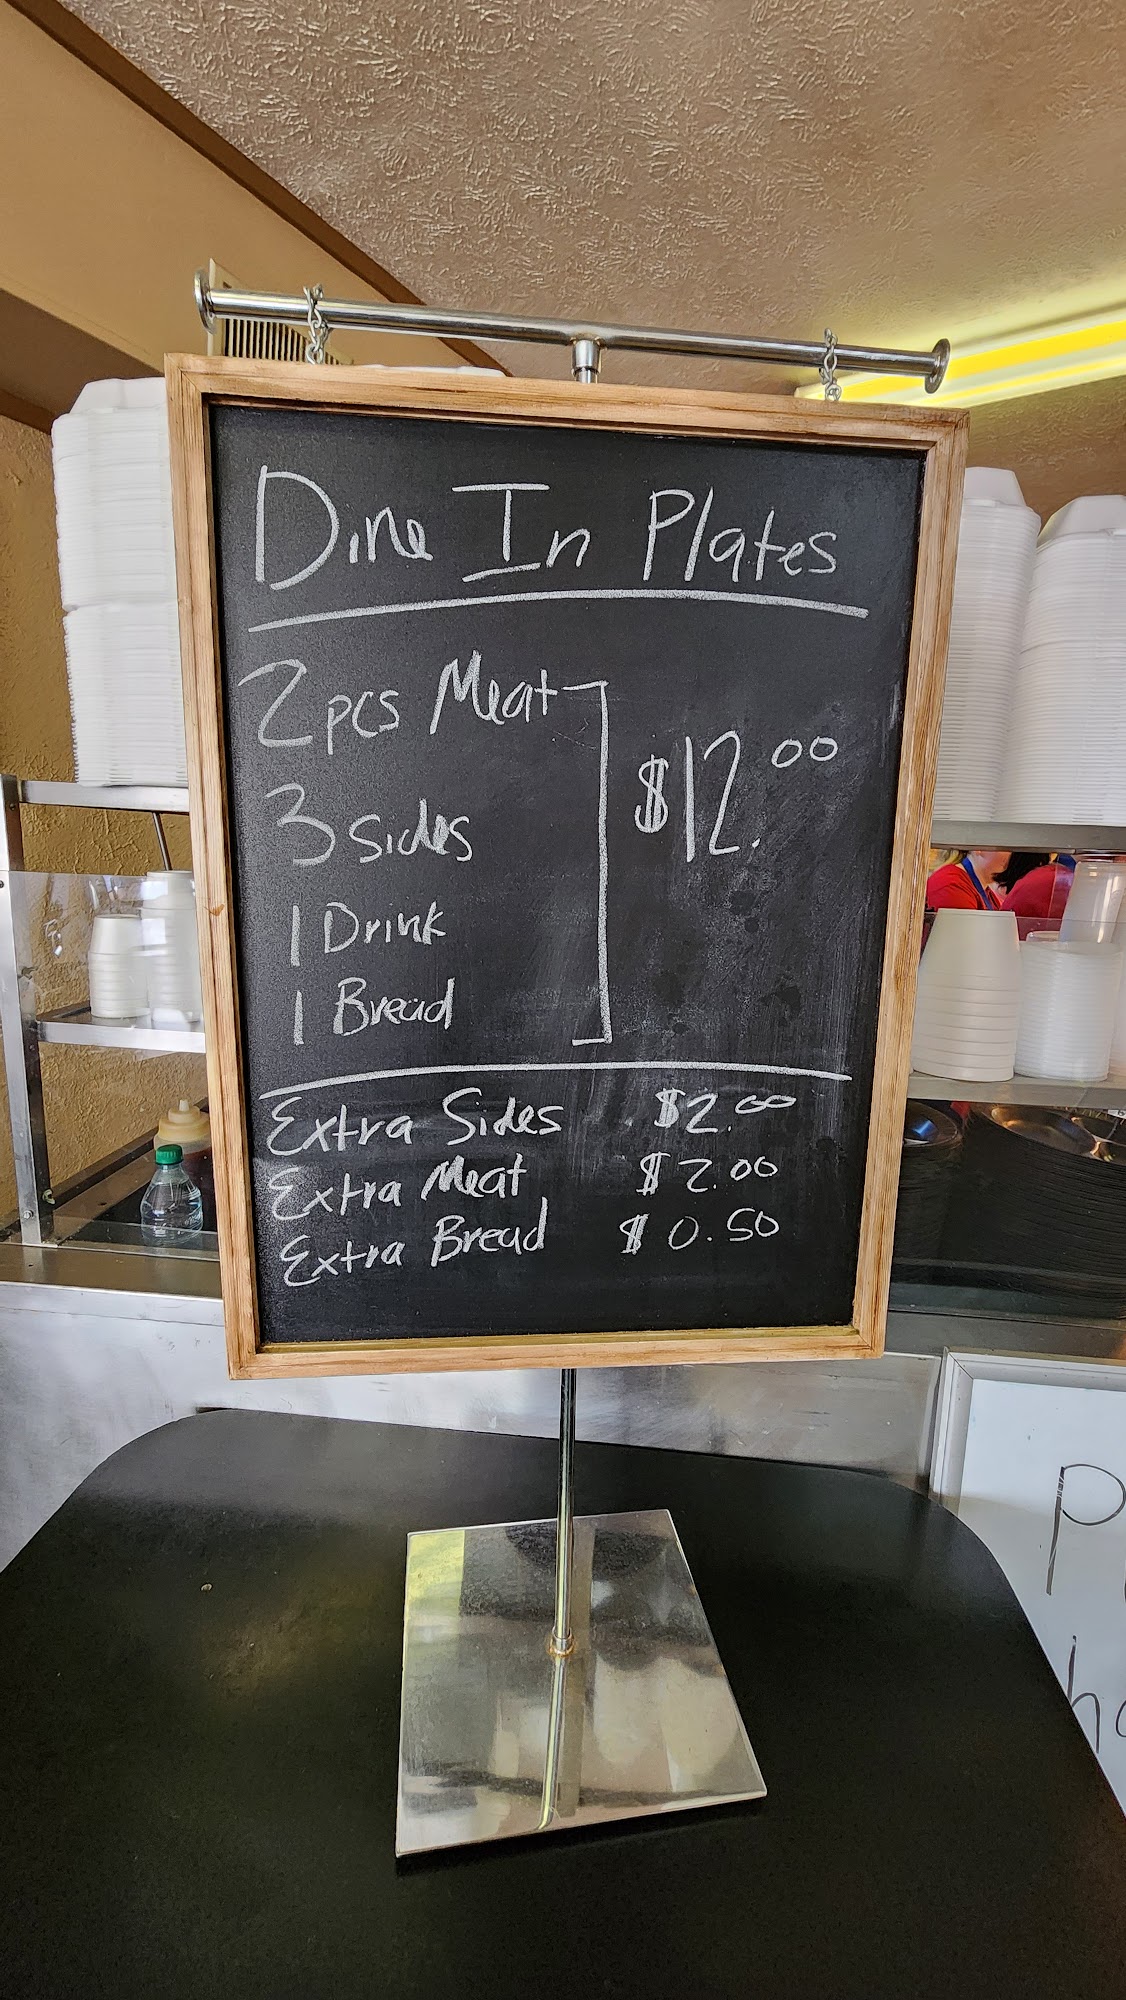 Dine In Plates
2 pcs Meat
3 sides
1 Drink
1 Bread
$12.00
Extra Sides $2.00
Extra Meat $2.00
Extra Bread $0.50